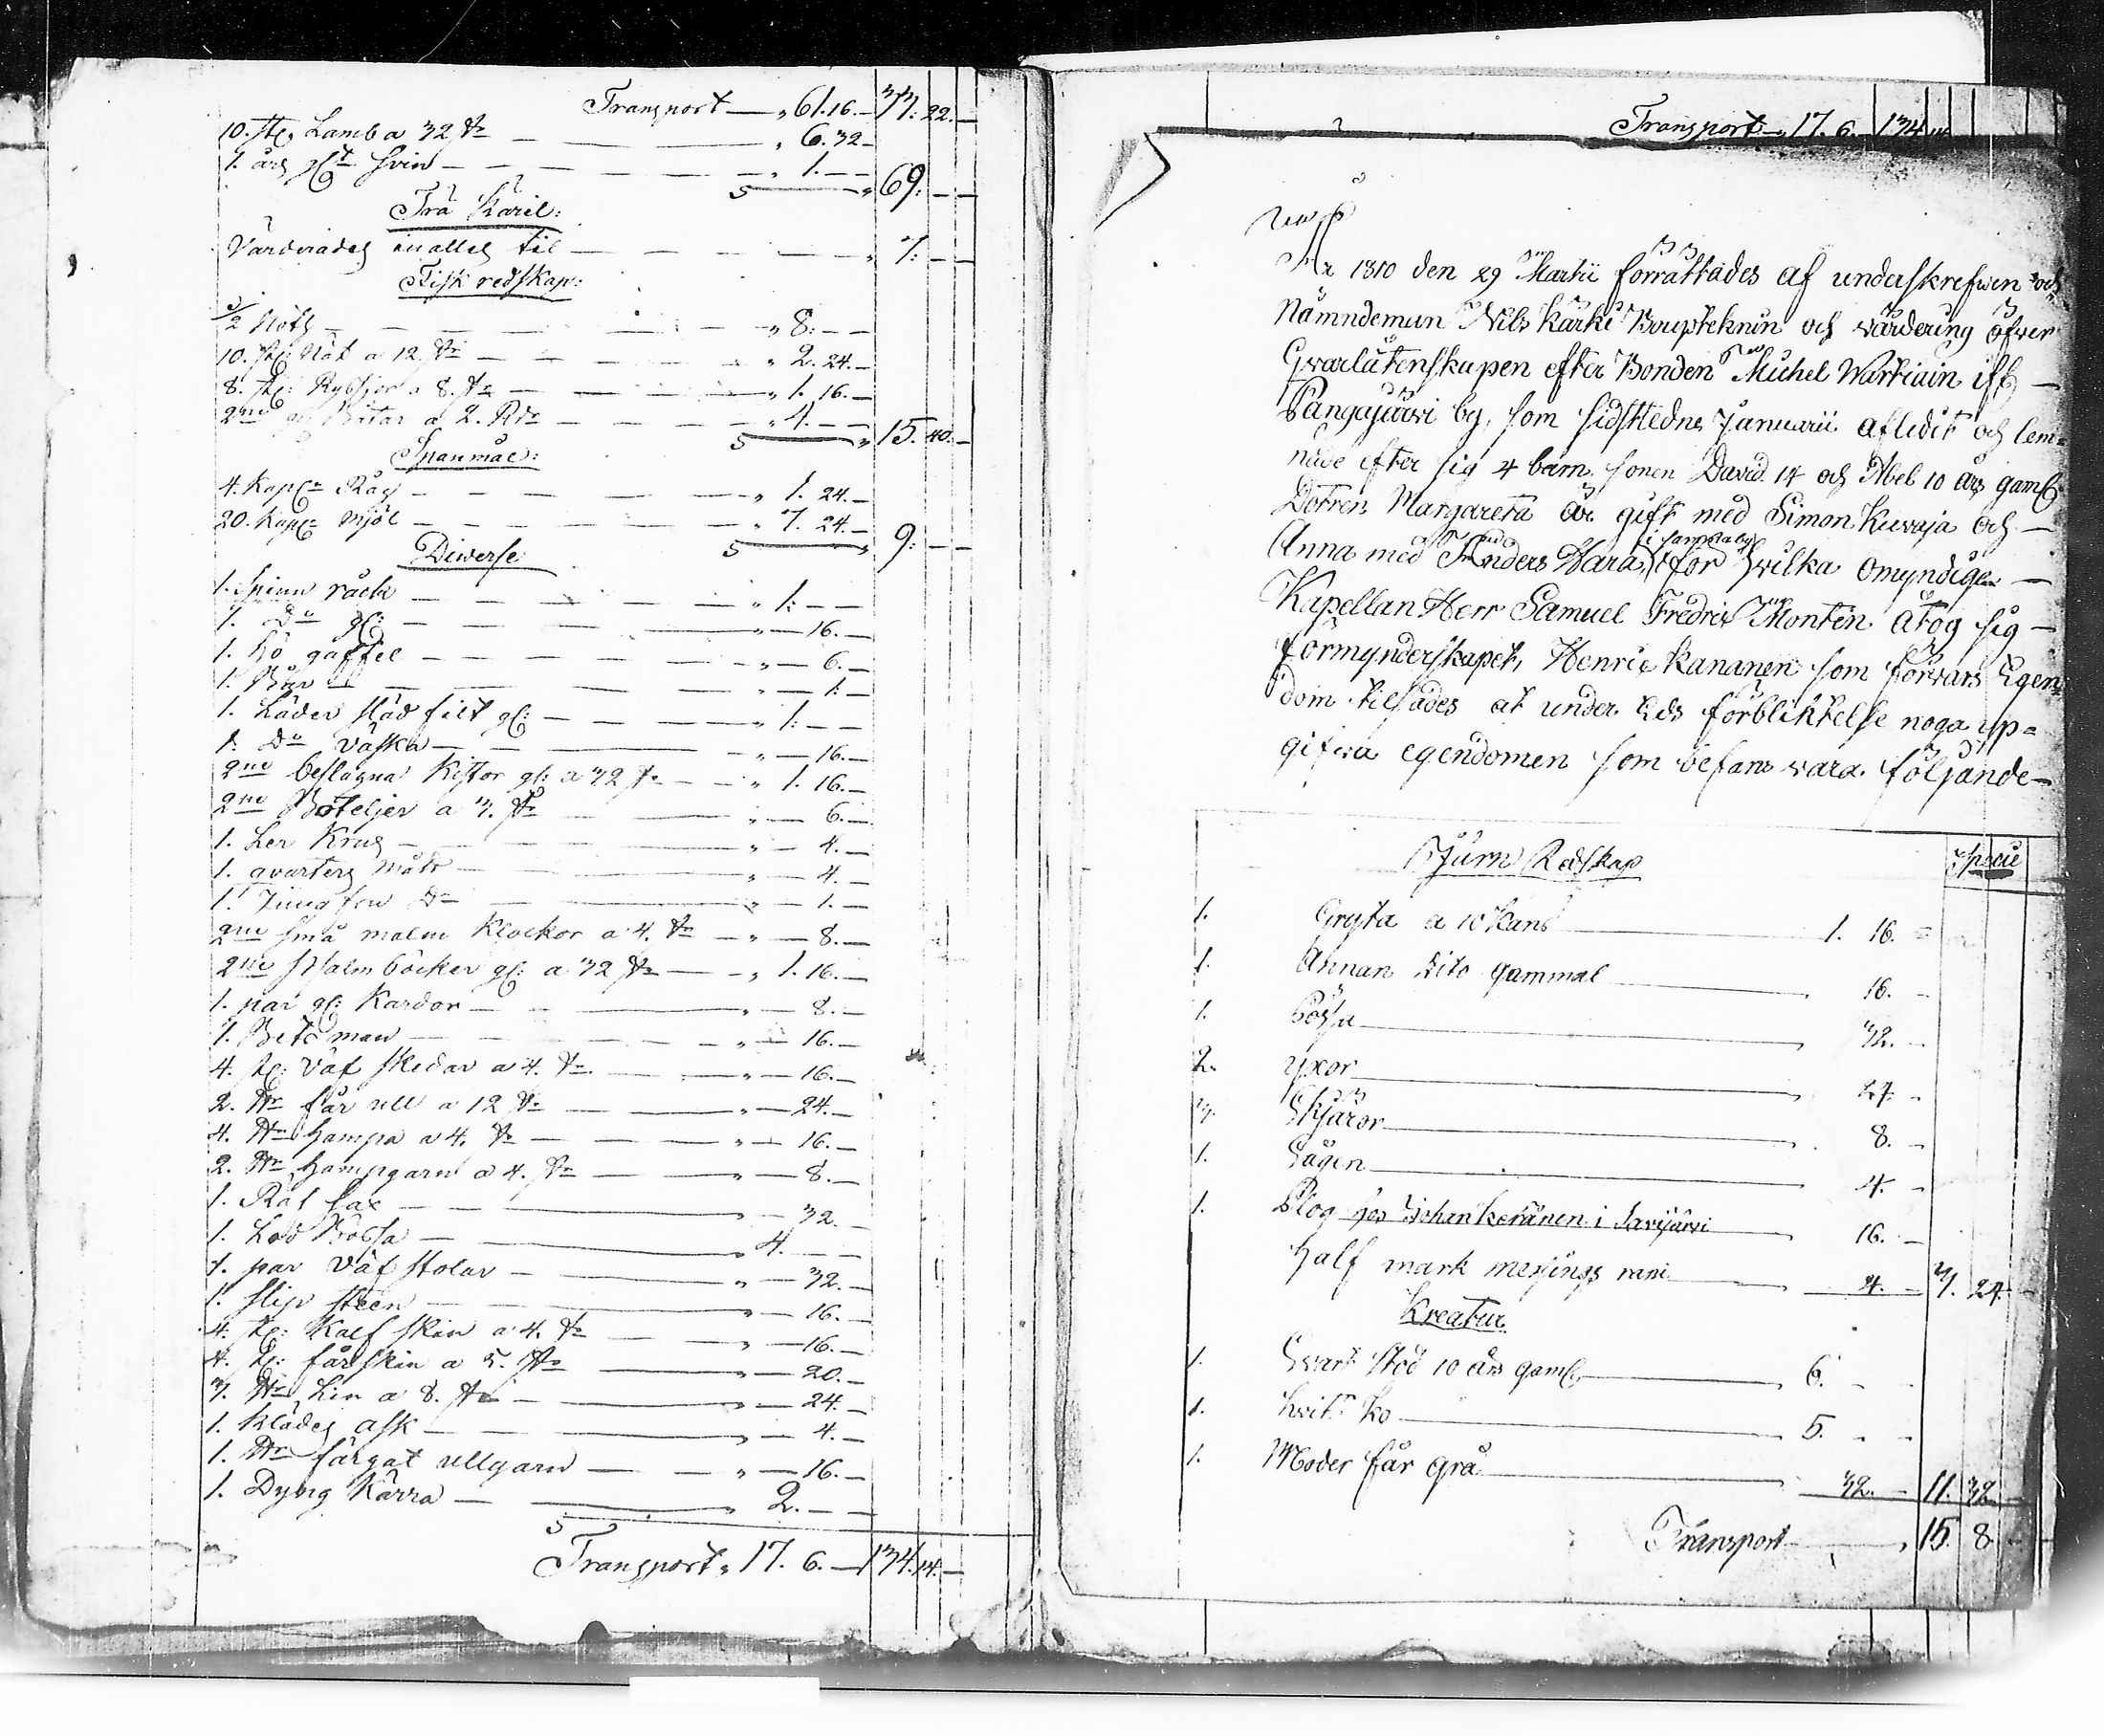 Transport — „ 61. 16. — 33. 22. —
10. st: Lamb a 32 sr — „ 6. 32 —
1. års gl: svin — „ 1. — —
S „ 69: — —
Trä Käril:
Värderades in alles til — „ 7: — —
Fisk redskap:
1/2 Noth — „ 8: — —
10. st: Nät a 12. sr — „ 2. 24. —
8. st: Rysjor a 8. sr — „ 1. 16. —
2ne gl: Båtar a 2. Rdr — „ 4. — —
S „ 15. 40. —
Spanmål:
4. Kapr Råg — „ 1. 24. —
20. Kapr Mjöl — „ 7. 24. —
S „ 9: — —
Diverse
1. Spinn råck — „ 1: — —
1. Do gl: — „ — 16. —
1. Hö gaffel — „ — 6. —
1. — „ — 1: —
1. Läder släd filt gl: — „ 1: — —
1: Do väska — „ — 16. —
2ne beslagna Kistor gl: a 32 s. — „ 1. 16. —
2ne Boteljer a 3. sr — „ — 6. —
1. Ler Krus — „ — 4. —
1. qvarters mått — „ — 4. —
1. Jungfru Do — „ — 1. —
2ne små malm Klockor a 4. sr — „ — 8. —
2ne Psalm böcker gl: a 32 sr — „ 1. 16. —
1. par gl: Kardor — „ — 8. —
1. Betsman — „ — 16. —
4. st: väf skedar a 4. sr. — „ — 16. —
2. får ull a 12 sr — „ — 24. —
4. hampa a 4. sr — „ — 16. —
2. hampgarn a 4. sr — „ — 8. —
1. sax — „ — 32. —
1. Lod Bössa — „ 4. — —
1. par väf stolar — „ — 32. —
1. slip steen — „ — 16. —
4. st: Kalf skin a 4. sr — „ — 16. —
4. st: får skin a 5. sr — „ — 20. —
3. Lin a 8. sr — „ — 24. —
1. Klädes ask — „ — 4. —
1. färgat ullgarn — „ — 16. —
1. Dyng Kärra — „ 2. — —
Transport „ 17. 6. — 134. 14. —
Transport „ 17. 6. — 134 14
No
År 1810 den 29 Martii förrättades af underskrefven och
Nämndeman Nils Kärki Boupteknin och värdering öfver
Qvarlåtenskapen efter Bonden Michel Wartiain ifr —
Pangajärvi by, som sidstledne Januarii aflidit och lem=
nade efter sig 4 barn, sonen David 14 och Abel 10 års gaml:
Dottren Margareta är gift med Simon Kuvaja och —
i samma by
Anna med Anders Hara, för hvilka omyndiga —
Kapellan Herr Samuel Fredric Montin åtog sig —
förmynderskapet, Henric Kananen som förvars Egen=
dom tilsades at under Eds förbliktelse noga up=
gifva egendomen som befans vara följande —
Jårn Redskap
Specie
1. Gryta a 10 Kans — 1. 16. =
1. Annan dito gammal — 16. -
1. Bössa — 32. -
2. yxor — 24. -
3. Skjäror — 8. -
1. Sågen — 4. -
1. Plog hos Johan Keränen i Savijärvi 16. -
half mark mesings — 4. — 3. 24. —
Kreatur
1. Svart stod 10 års gaml: — 6. - -
1. hvitt Ko — 5. - -
1. Moder får grå — 32. — 11. 32. —
Transport — 15. 8 -